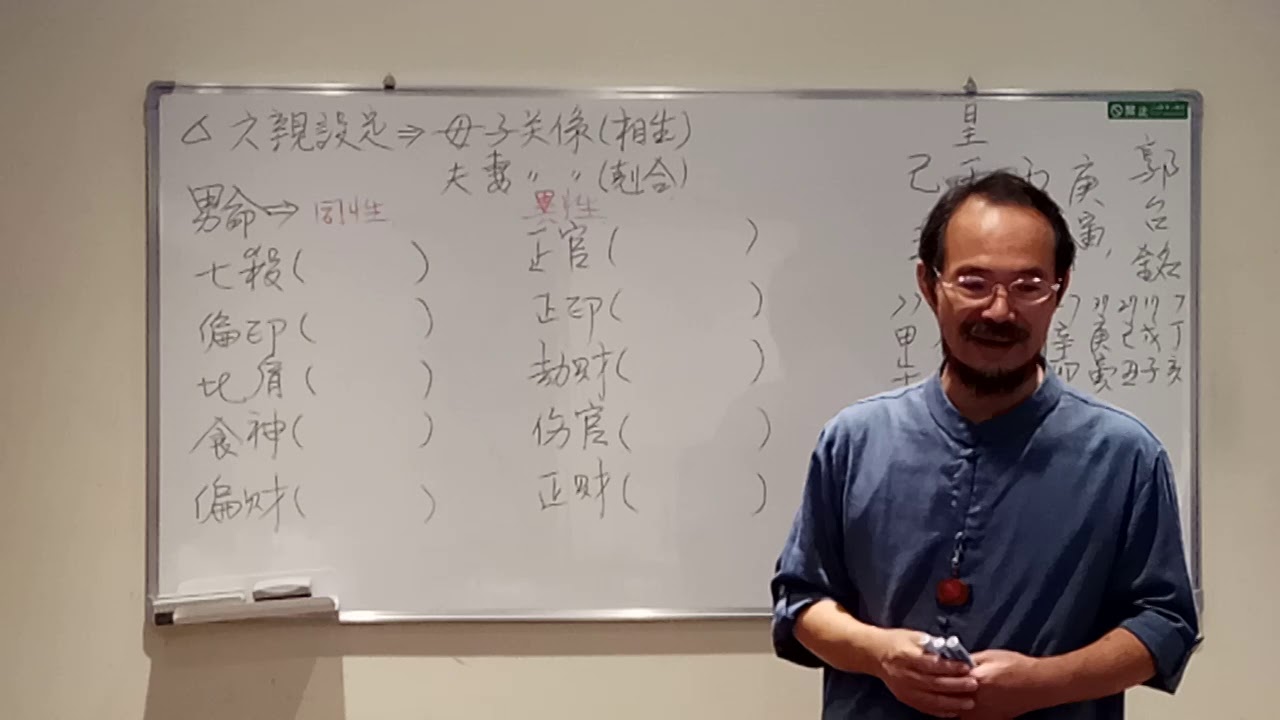 △ 六親設定⇒母子关係(相生)
夫妻〃〃(剋合)
男命⇒同性 異性
七殺( ) 正官( )
偏印( ) 正印( )
比肩( ) 劫财( )
食神( ) 伤官( )
偏财( ) 正财( )
皇
己 庚
寅,
郭台銘
37 27 17 7
甲 辛庚己戊丁
卯寅丑子亥